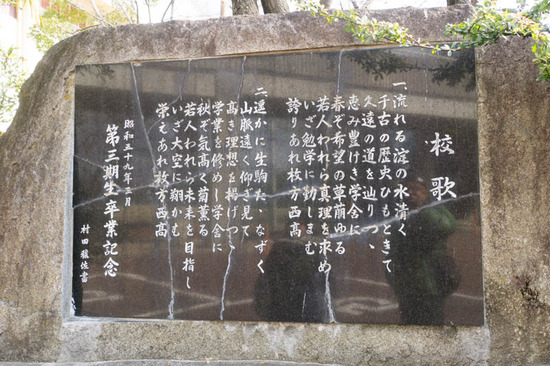 校歌
一、流れる淀の水清く
千古の歴史ひもときて
久遠の道を辿りつゝ
恵み豊けき学舎に
春ぞ希望の草萠ゆる
若人われら真理を求め
いざ勉学に勤しまむ
誇りあれ枚方西高
二、遥かに生駒たゝなずく
山脈遠く仰ぎ見て
高き理想を掲げつゝ
学業を修めし学舎に
秋ぞ気高く菊薫る
若人われら未来を目指し
いざ大空に翔かむ
栄えあれ枚方西高
昭和五十九年三月
第三期生卒業記念
村田